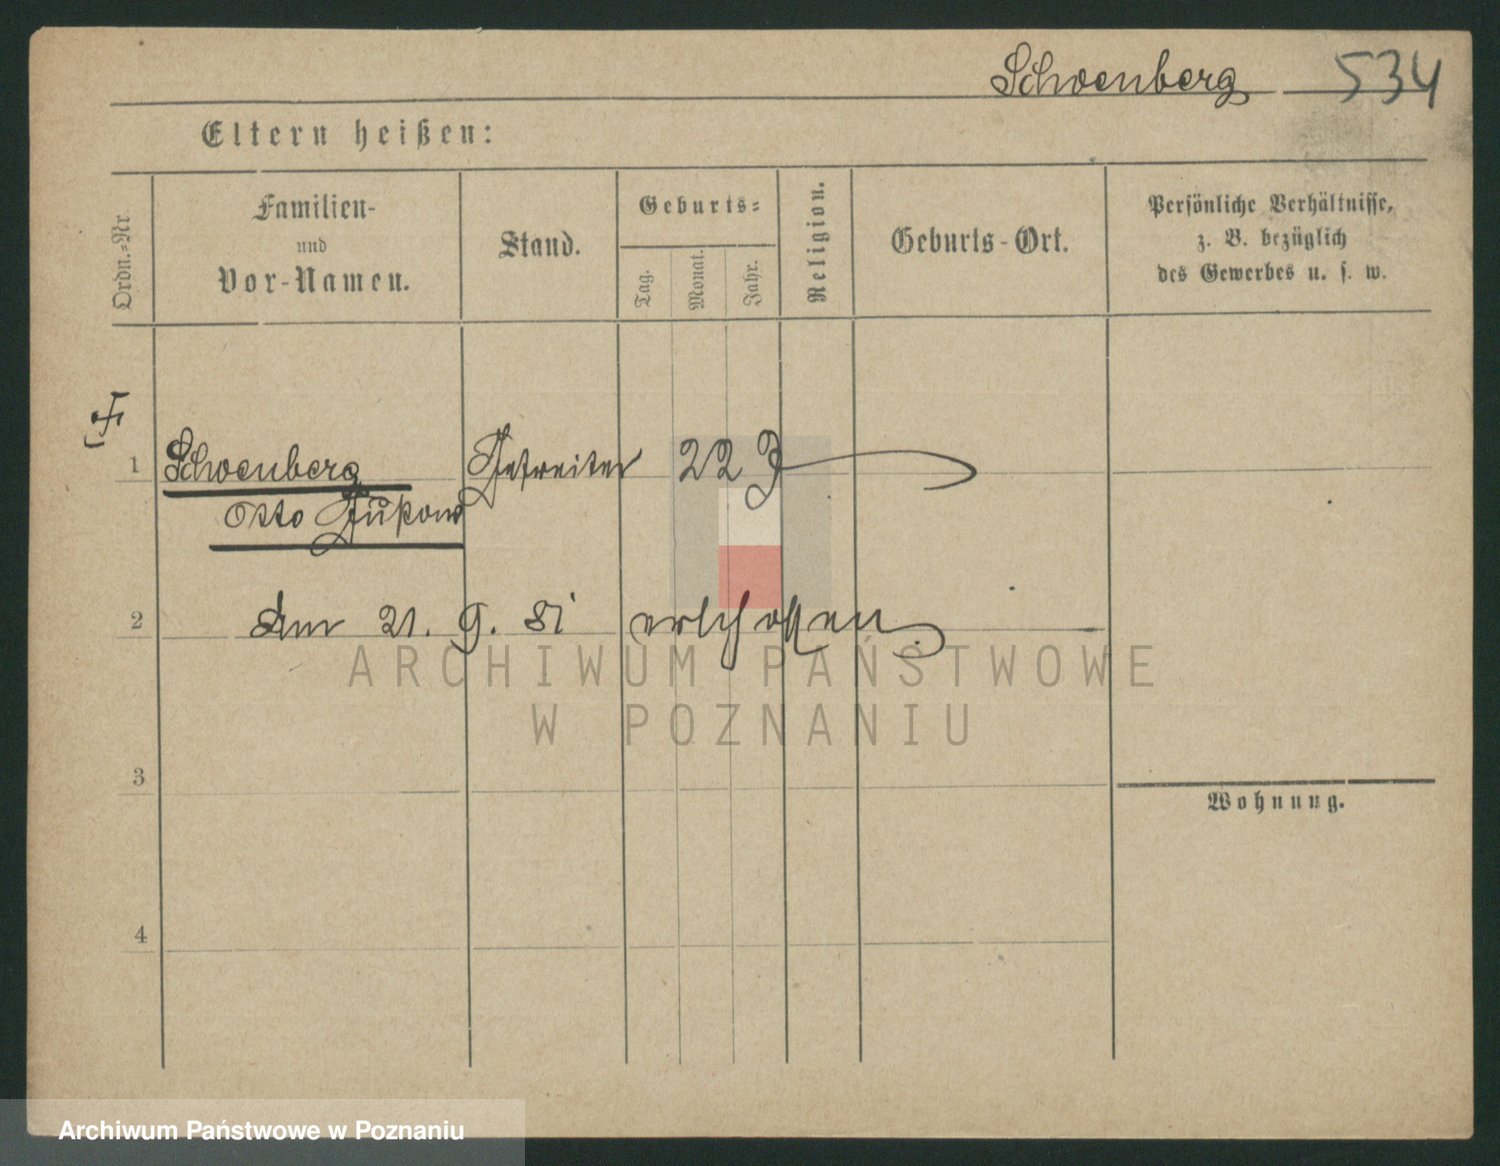 Schoenberg 534
Eltern heißen:
Ordn.-Nr
Familien-
und
Vor-Namen.
Stand.
Geburts-
Tag.
Monat.
Jahr.
Religion.
Geburts-Ort.
Persönliche Verhältnisse,
z. B. bezüglich
des Gewerbes u. s. w.
1 Schoenberg Gefreiter 22 J
Otto
2 Am 21. 9. 81 erschossen.
3
Wohnung.
4
ARCHIWUM PAŃSTWOWE
W POZNANIU
Archiwum Państwowe w Poznaniu